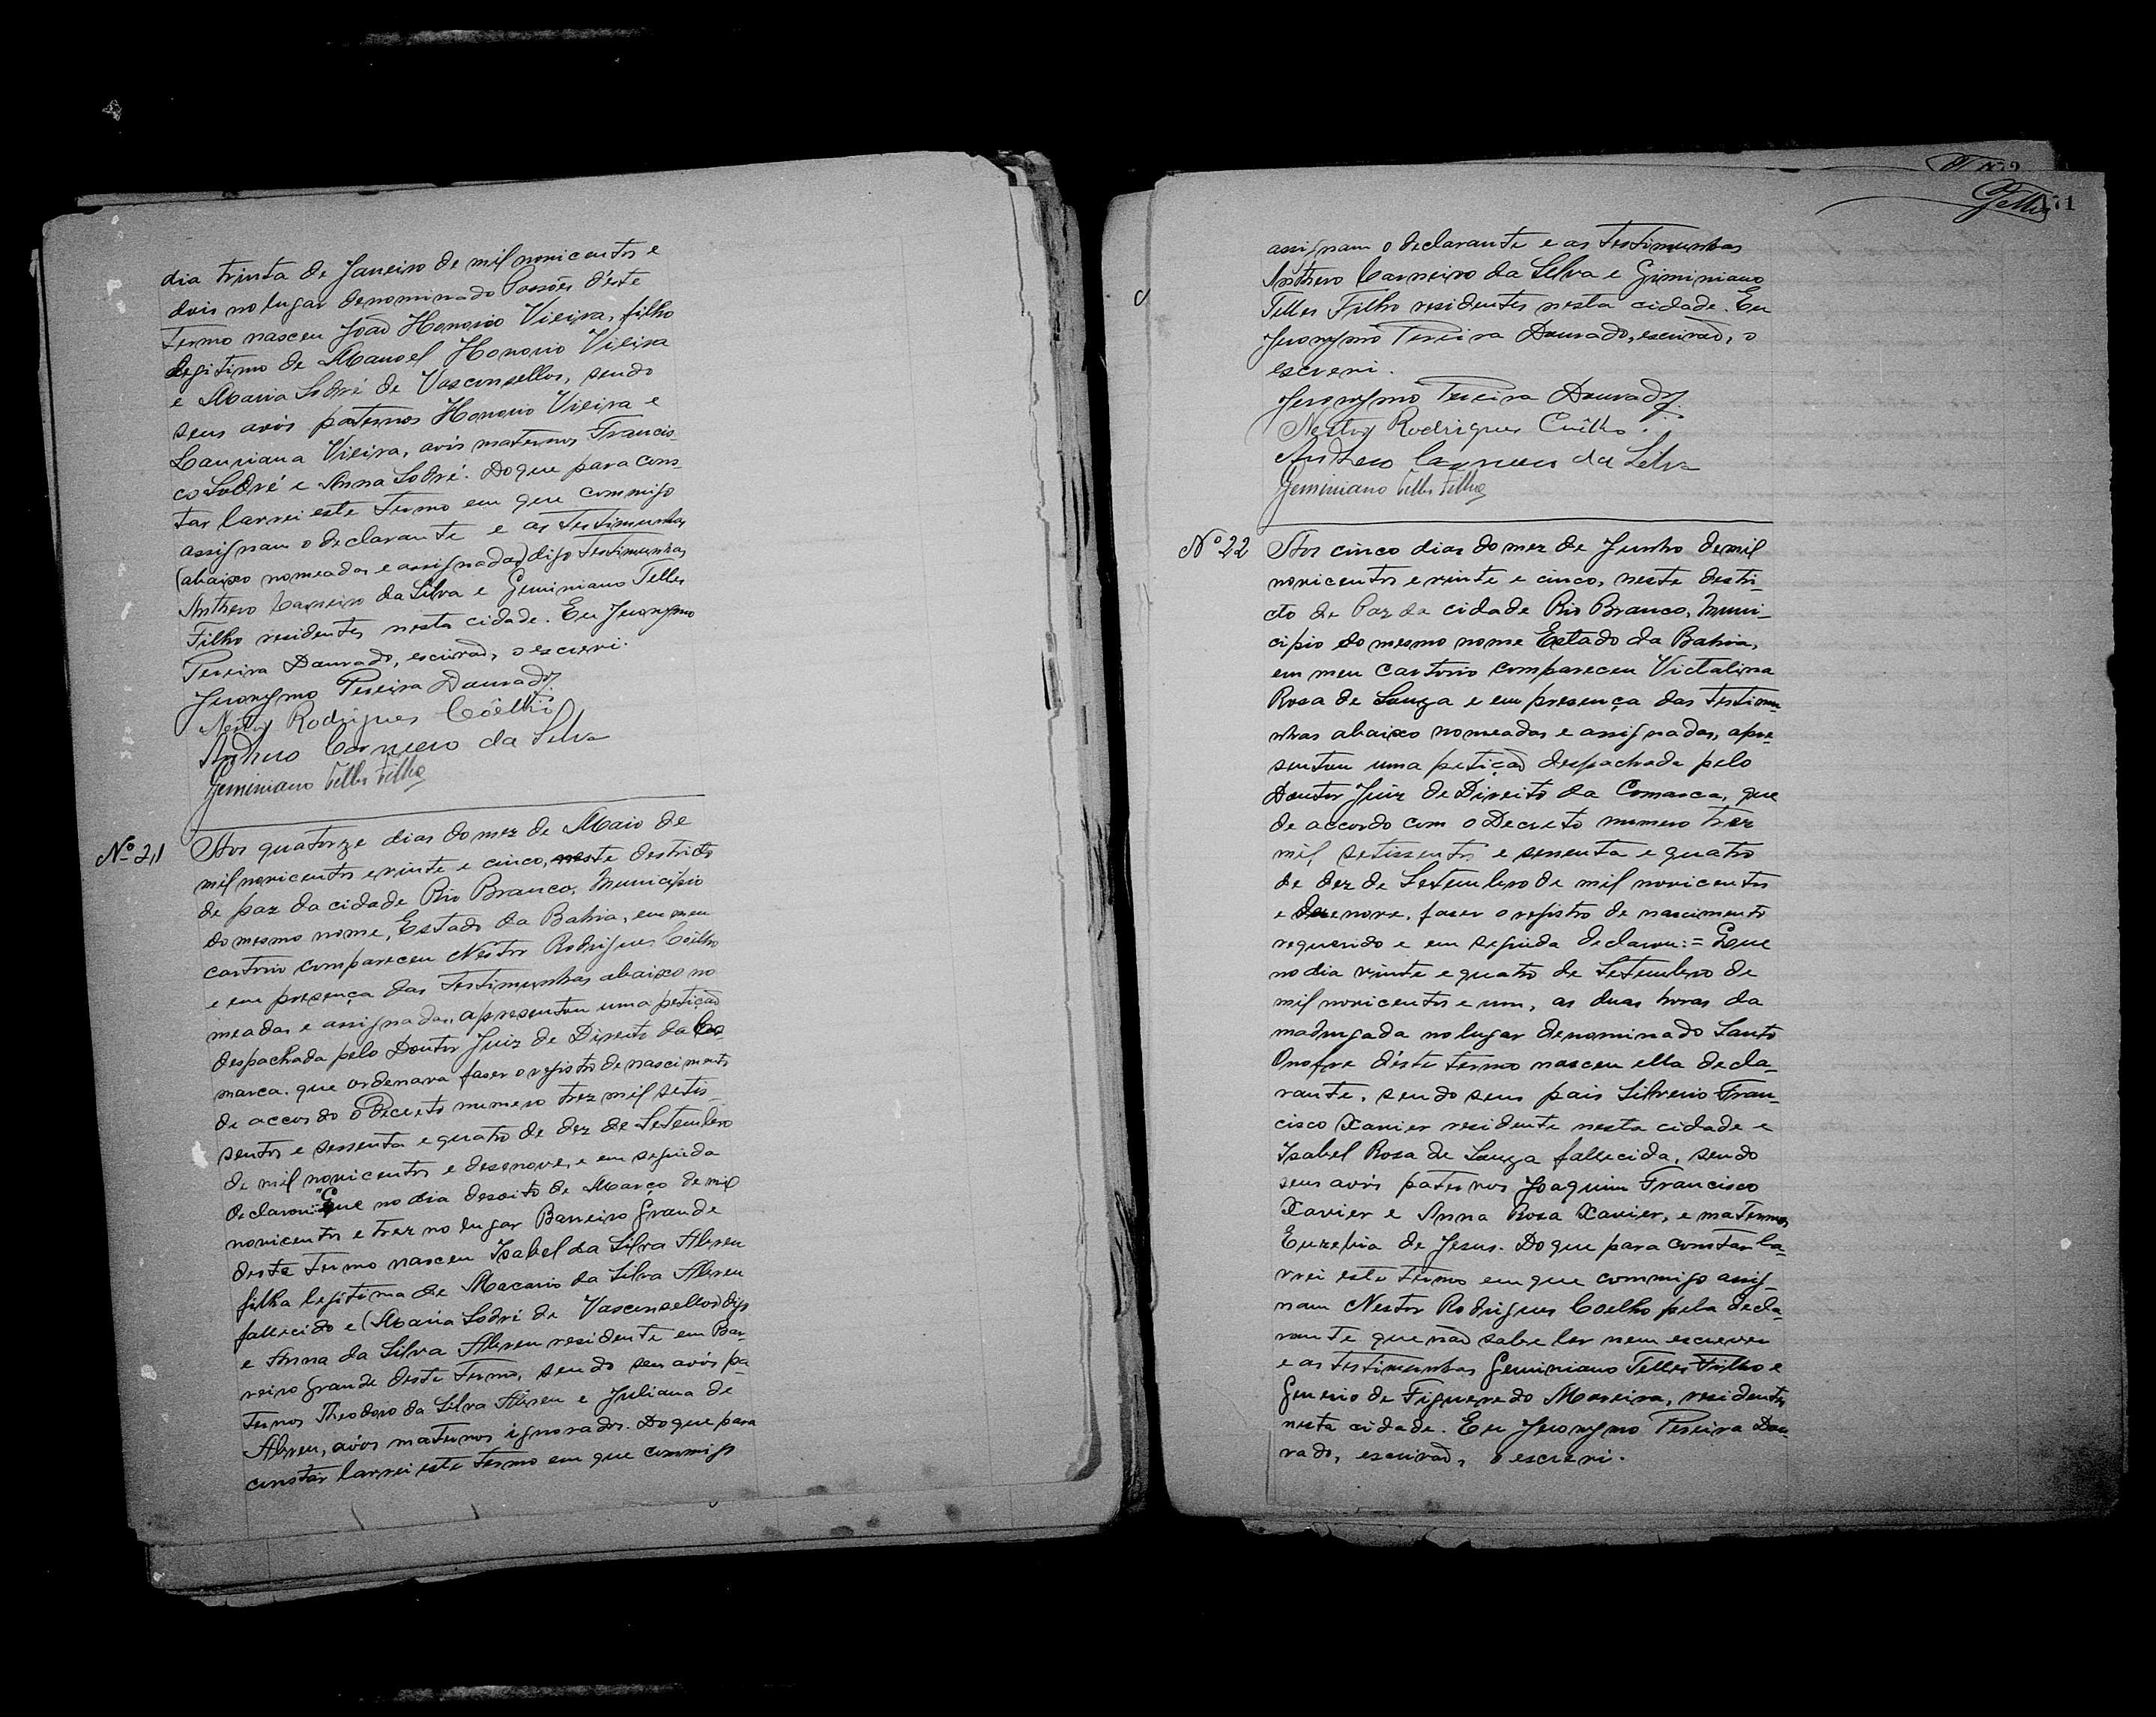 dia trinta de Janeiro de mil novicentos e
dois no lugar denominado Passões d'éste
Termo nasceu João Honorio Vieira, filho
legitimo de Manoel Honorio Vieira
e Maria Sodré de Vasconsellos, sendo
seus avós paternos Honorio Vieira e
Lauriana Vieira, avós maternos Francis-
co Sodré e Anna Sodré. Do que para cons-
tar lavrei este Termo em que commigo
assignam o declarante e as Testimunhas
(abaixo nomeadas e assignadas) digo Testimunhas
Anthero Carneiro da Silva e Geminiano Telles
Filho residentes nesta cidade. Eu Jeronymo
Pereira Dourado, escrivão, o escrevi.
Jeronymo Pereira Dourado
Nestor Rodrigues Coêlho
Anthero Carneiro da Silva
Geminiano Telles Filho
Nº 21
Aos quatorze dias do mez de Maio de
mil novicentos e vinte e cinco, neste destricto
de paz da cidade Rio Branco, Municipio
do mesmo nome, Estado da Bahia, em meu
cartorio compareceu Nestor Rodrigues Coêlho
e em presença das Testimunhas abaixo no
meadas e assignadas, apresentou uma petição
despachada pelo Doutor Juiz de Direito da Co-
marca. que ordenava faser o registro de nascimento
de accordo o Decreto numero trez mil setis-
sentos e sessenta e quatro de dez de Setembro
de mil novicentos e desenove, e em seguida
declarou: Que no dia desoito de Março de mil
novicentos e trez no lugar Barreiro Grande
deste Termo nasceu Isabel da Silva Abreu
filha legitima de Macario da Silva Abreu
fallecido e (Maria Sodré de Vasconsellos) digo
e Anna da Silva Abreu residente em Bar-
reiro Grande deste Termo, sendo seu avós pa
ternos Theodoro da Silva Abreu e Juliana de
Abreu, avós maternos ignorados. Do que para
constar lavrei este Termo em que commigo
Telles 171
assignam o declarante e as Testimunhas
Anthero Carneiro da Silva e Giminiano
Telles Filho residentes nesta cidade. Eu
Jeronymo Pereira Dourado, escrivão, o
escrevi.
Jeronymo Pereira Dourado
Nestor Rodrigues Coêlho.
Anthero Carneiro da Silva
Geminiano Telles Filho
Nº 22
Aos cinco dias do mez de Junho de mil
novicentos e vinte e cinco, neste destri-
cto de Paz da cidade Rio Branco, Muni-
cipio do mesmo nome Estado da Bahia,
em meu Cartorio compareceu Victalina
Rosa de Souza e em presença das Testimu
nhas abaixo nomeadas e assignadas, apre-
sentou uma petição despachada pelo
Doutor Juiz de Direito da Comarca, que
de accordo com o Decreto numero trez
mil setissentos e sessenta e quatro
de dez de Setembro de mil novicentos
e dezenove, faser o registro de nascimento
requerido e em seguida declarou: = Que
no dia vinte e quatro de Setembro de
mil novicentos e um, as duas horas da
madrugada no lugar denominado Santo
Onofre d'éste termo nasceu ella decla-
rante, sendo seus pais Silverio Fran-
cisco Xavier residente nesta cidade e
Isabel Rosa de Souza fallecida, sendo
seus avós paternos Joaquim Francisco
Xavier e Anna Rosa Xavier, e maternos
Euzebia de Jesus. Do que para constar la-
vrei este Termo em que commigo assig-
nam Nestor Rodrigues Coelho pela decla-
rante que não sabe ler nem escrever
e as Testimunhas Geminiano Telles Filho e
Generio de Figueredo Moreira, residentes
nesta cidade. Eu Jeronymo Pereira Dou-
rado, escrivão, o escrevi.